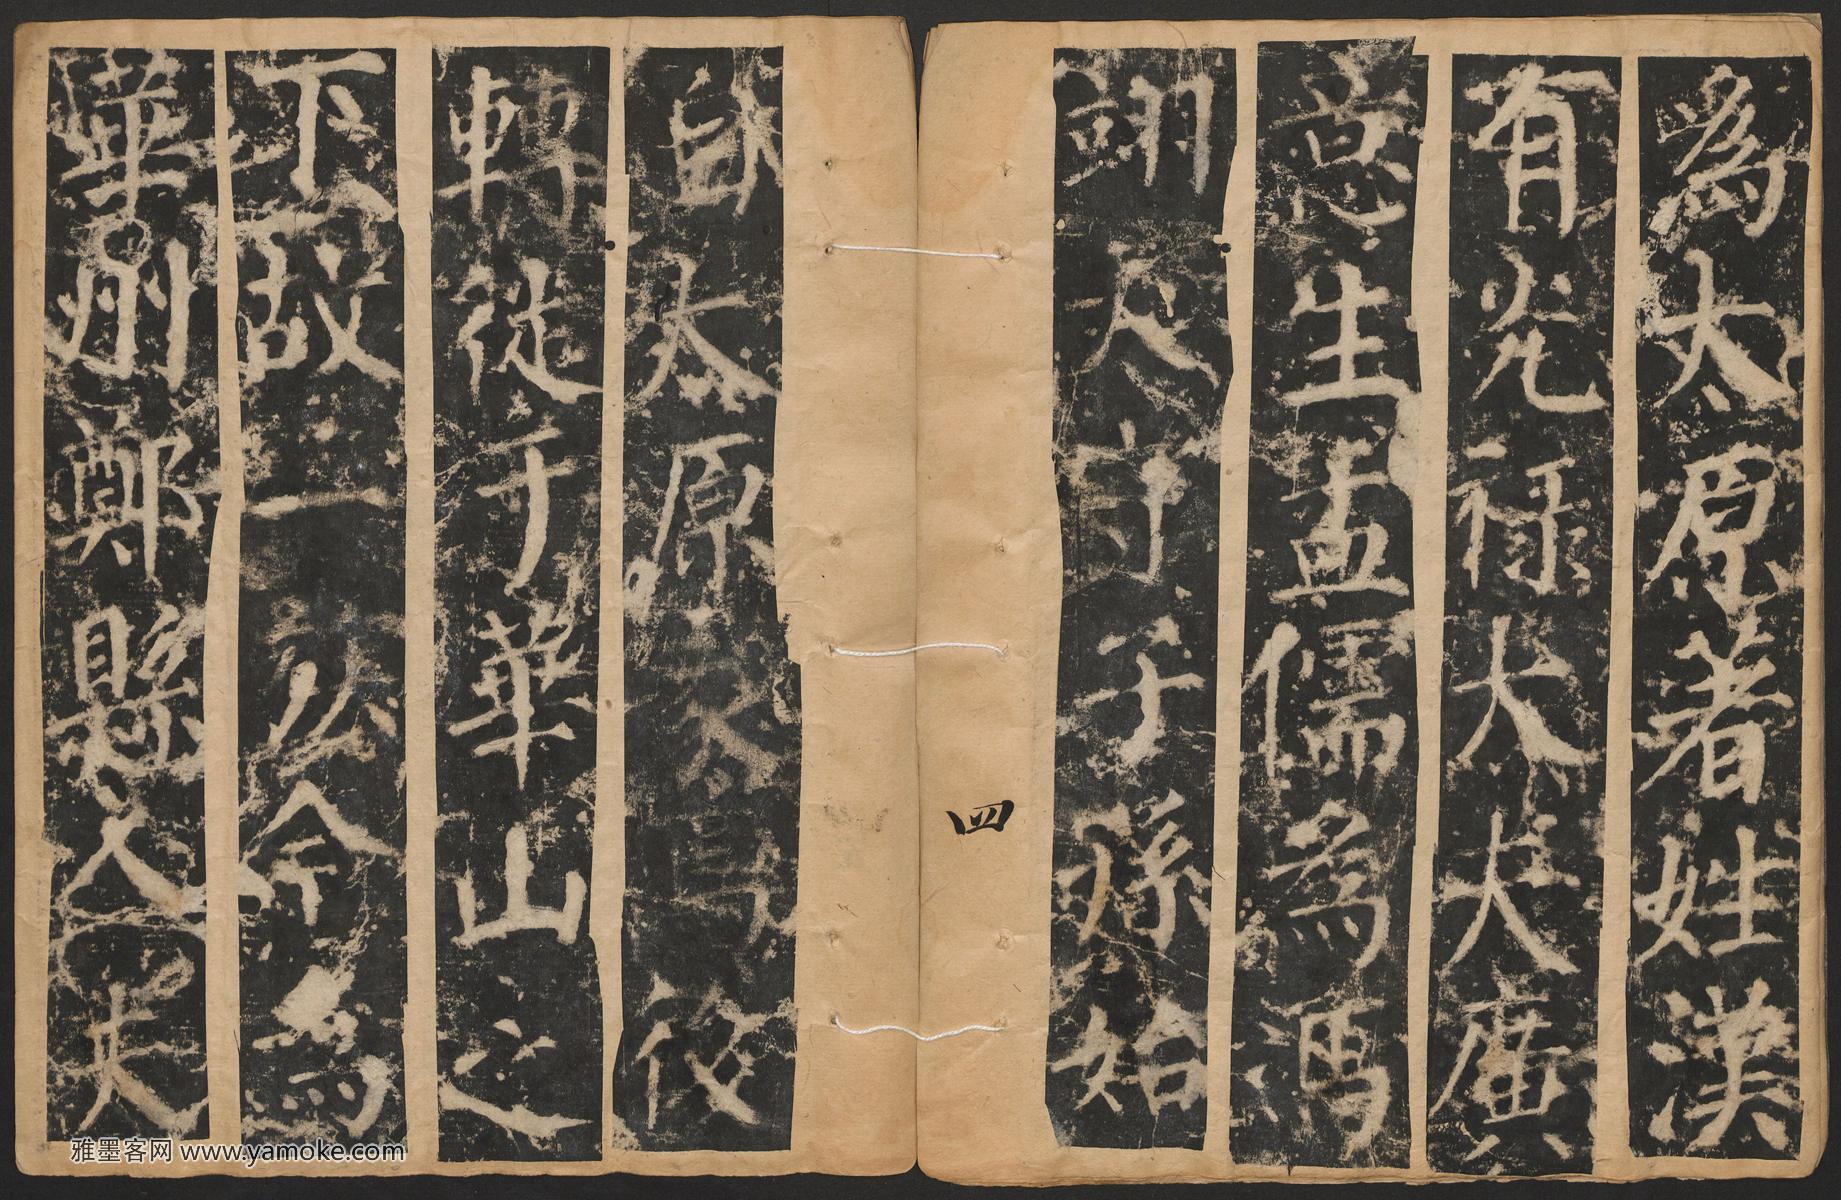 為太原著姓漢
有光禄大夫廣
意生孟儒為馮
翊太守子孫始
自太原
役
轉徙于華山之
下故一公今為
華州鄭縣人夫
四
雅墨客网 www.yamoke.com